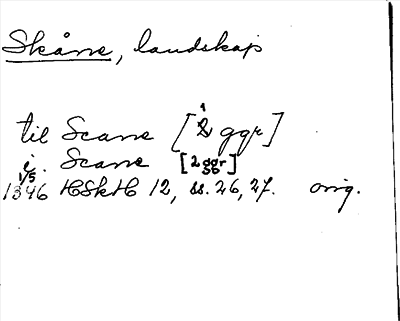 Skåne, landskap
til Scane [2 ggr]
i. Scane [2 ggr]
1/5
1346 HSkH 12, ss. 26, 27. orig.